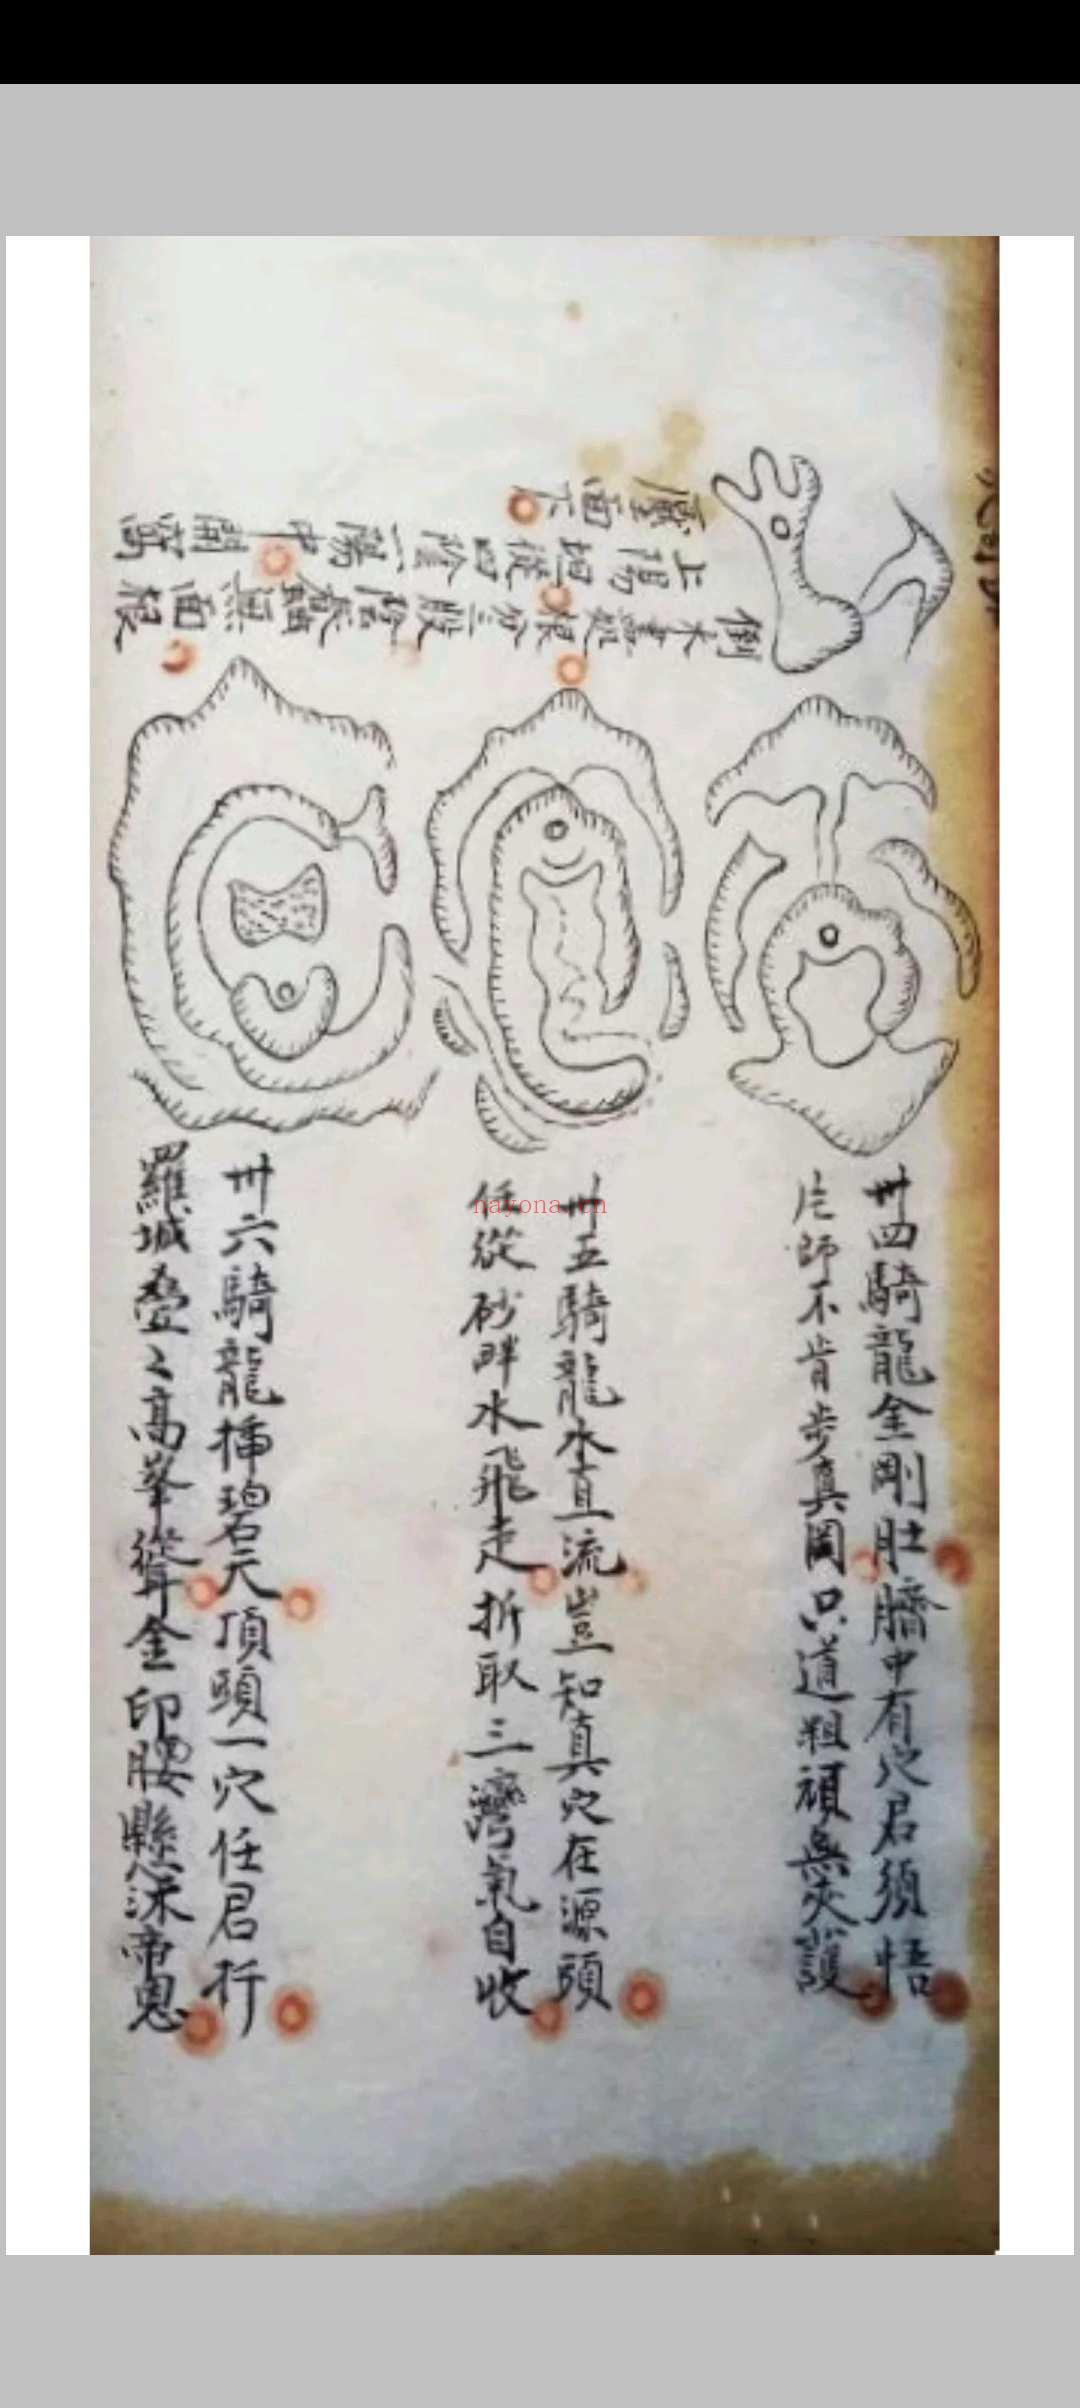 卅四騎龍金剛肚臍中有穴君須悟
凡師不肯步真岡只道粗頑無夾護
卅五騎龍水直流豈知真穴在源頭
任從砂畔水飛走折取三灣氣自收
卅六騎龍插碧天頂頭一穴任君扦
羅城疊〻高峯聳金印腰懸深帝恩
倒木
上陽坦從四陰一陽中開窩
壓面下
nayona.cn